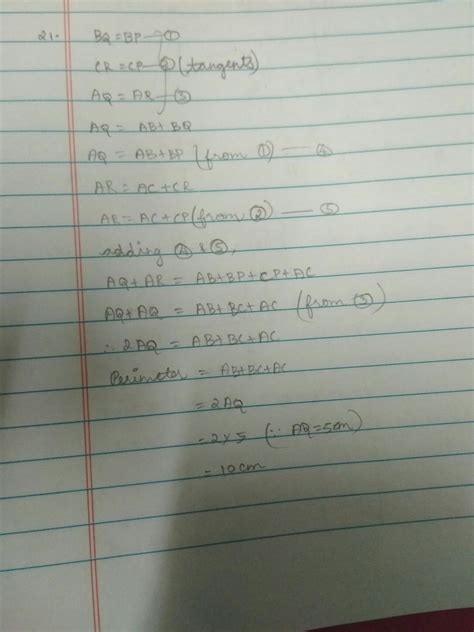 21. BQ = BP — ①
CR = CP — ② (tangents)
AQ = AR — ③
AQ = AB + BQ
AQ = AB + BP (from ①) — ④
AR = AC + CR
AR = AC + CP (from ②) — ⑤
adding ④ & ⑤,
AQ + AR = AB + BP + CP + AC
AQ + AQ = AB + BC + AC (from ③)
∴ 2AQ = AB + BC + AC
Perimeter = AB + BC + AC
= 2AQ
= 2 × 5 (∵ AQ = 5cm)
= 10cm